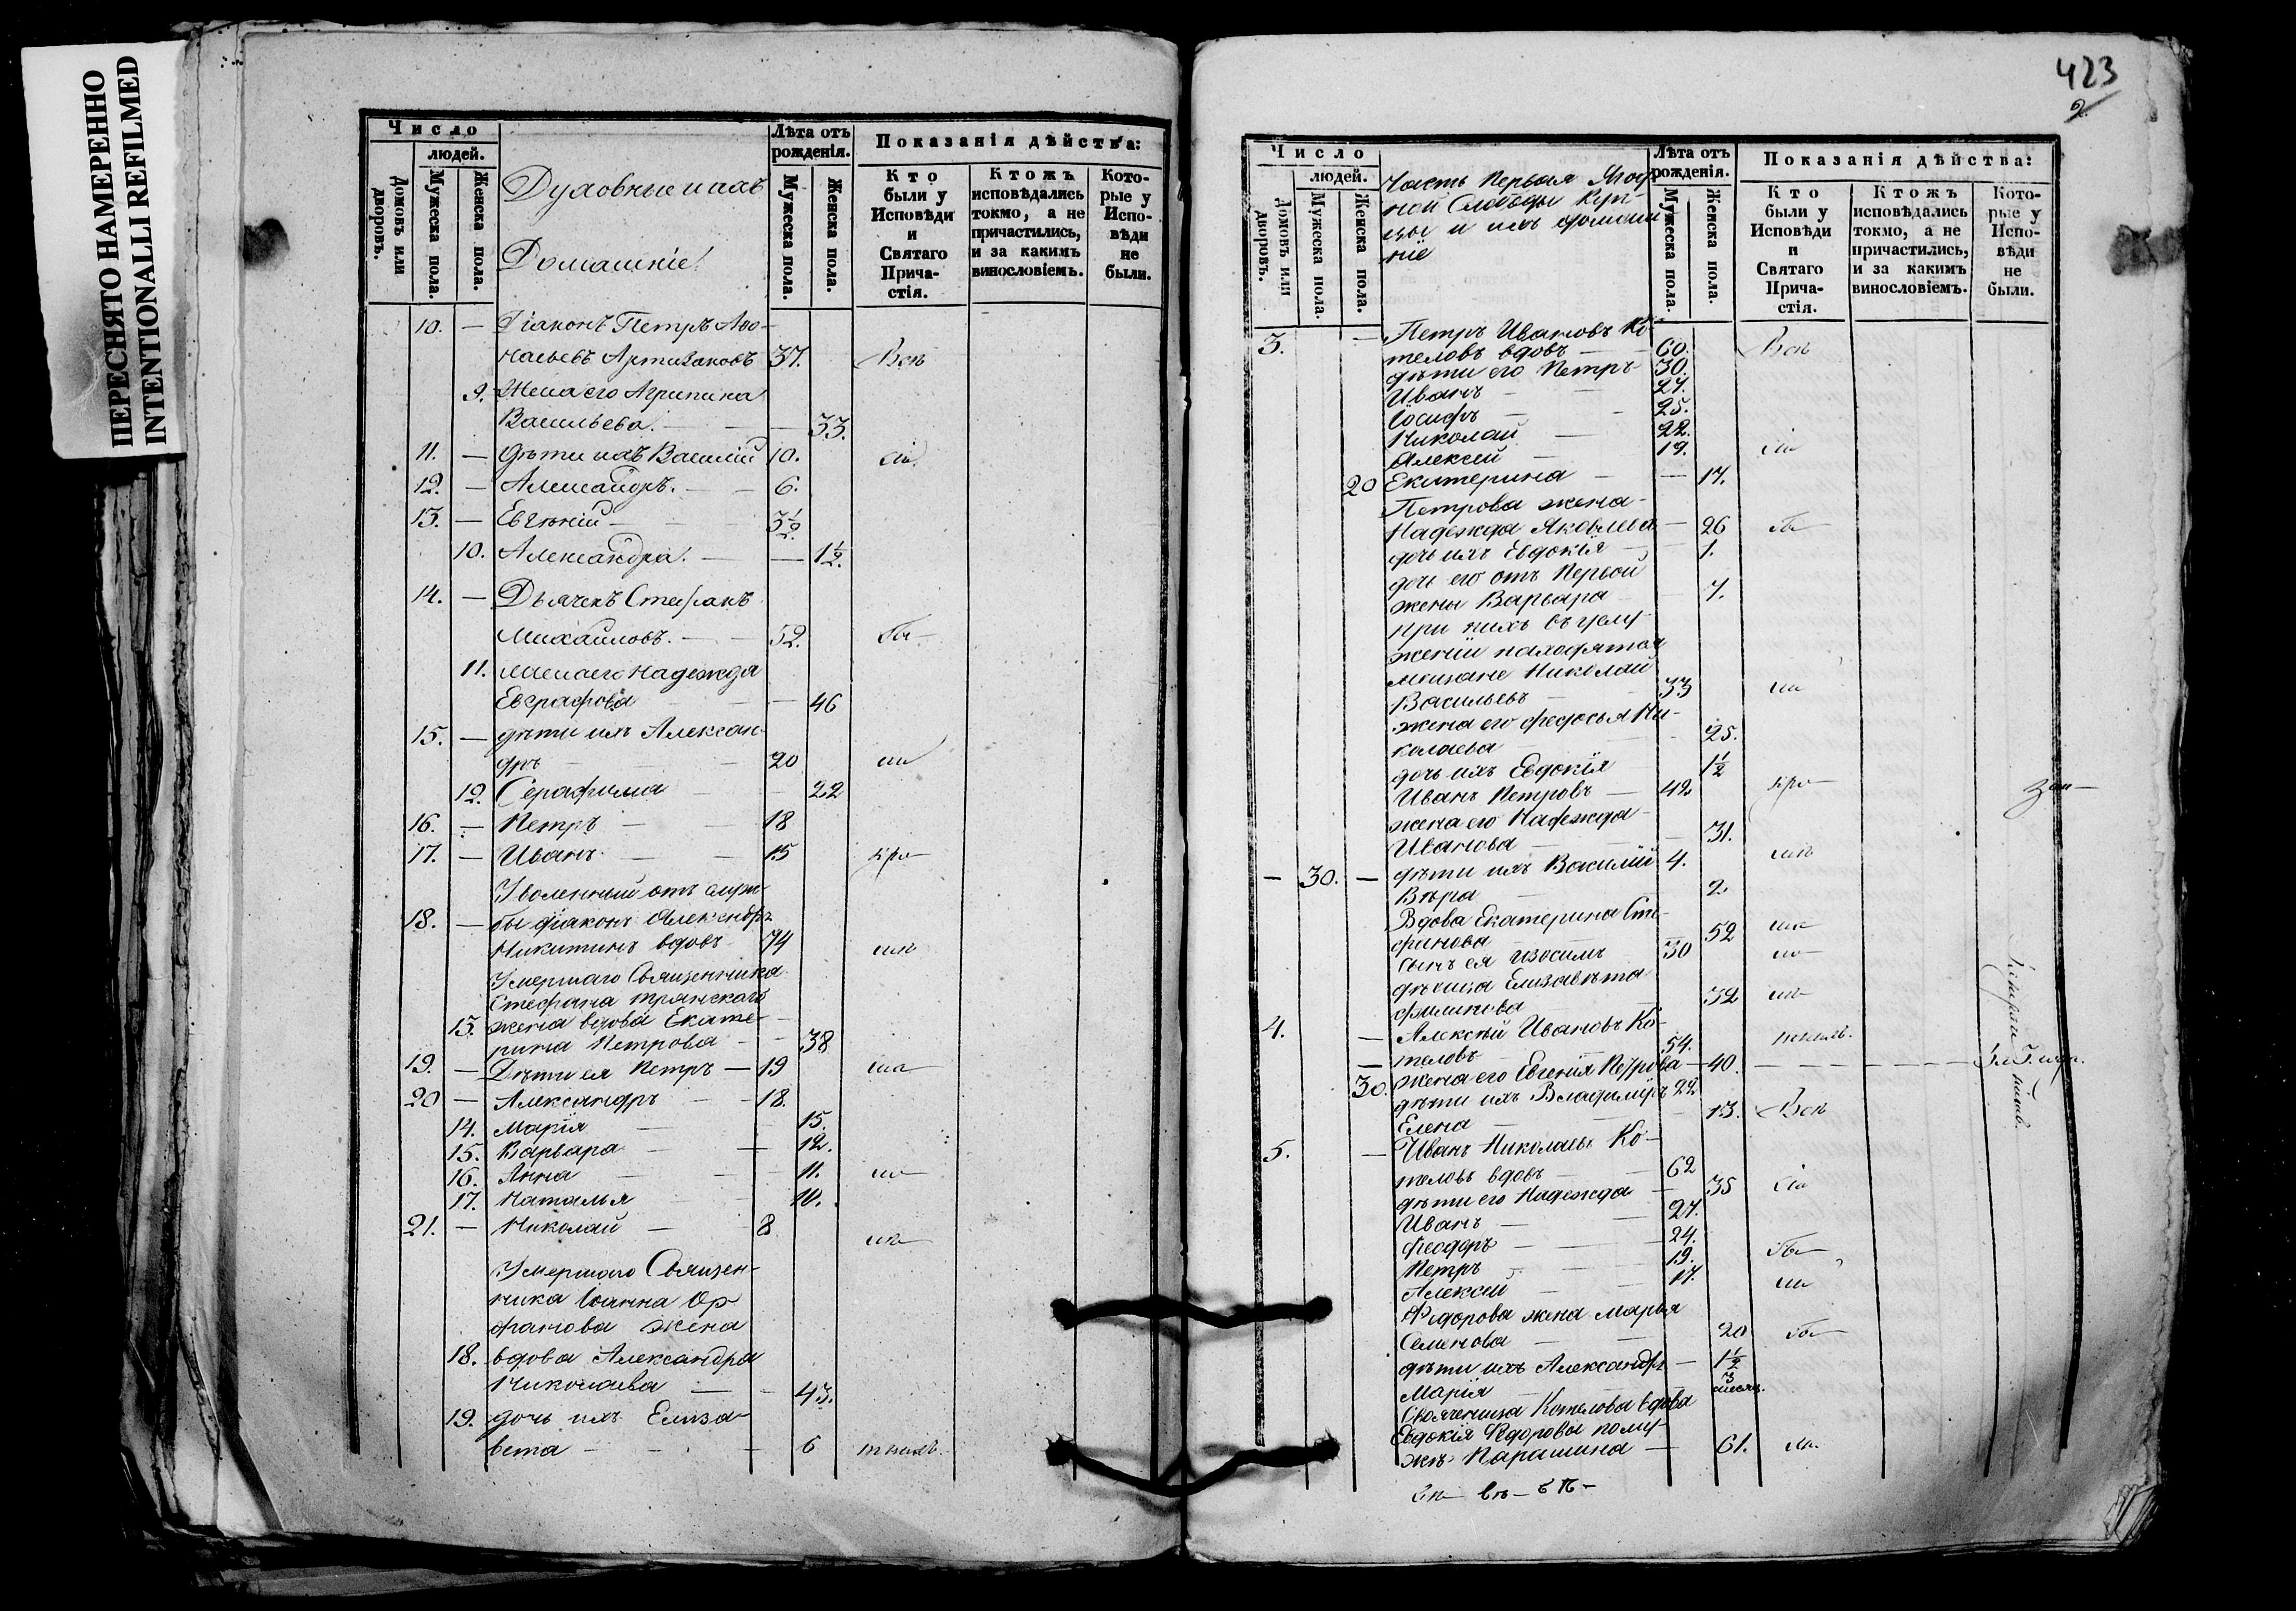 ПЕРЕСНЯТО НАМЕРЕННО
INTENTIONALLI REFILMED
Число
людей.
Домовъ или дворовъ.
Мужеска пола.
Женска пола.
Духовные и ихъ
Домашніе
Лѣта отъ рожденія.
Мужеска пола.
Женска пола.
Показанія дѣйства:
Кто были у Исповѣди и Святаго Причастія.
Ктожъ исповѣдались токмо, а не причастились, и за какимъ винословіемъ.
Которые у Исповѣди не были.
10. — Діаконъ Петръ Аѳо-
насьевъ 37. Всѣ
9. Жена его Агрипина
Васильева. — 33.
11. — Дѣти ихъ Василій 10.
12. — Александръ. — 6.
13. — Евгеній — 3½
10. Александра. — 1½.
14. — Дьячекъ Стефанъ
Михайловъ. — 52.
11. жена его Надежда
Евграфова — 46
15. — дѣти ихъ Алексан-
дръ 20
12. Серафима — 22
16. — Петръ — 18
17. — Иванъ — 15
Уволенный отъ служ-
18. — бы діаконъ Александръ
Никитинъ вдовъ 74
Умершаго Священника
Стефана
13. жена вдова Екате-
рина Петрова — 38
19. — Дѣти ея Петръ — 19
20 — Александръ — 18.
14. Марія 15.
15. Варвара — 12.
16. Анна — 11.
17. Наталья 10.
21. — Николай — 8
Умершаго Священ-
ника Іоанна Ор
фанова жена
18. вдова Александра
Николаева — 43.
19. дочь ихъ Елиза-
вета — 6
423
2
Число
людей.
Домовъ или дворовъ.
Мужеска пола.
Женска пола.
Часть Первая
ной Слободы Куп-
цы и ихъ домаш
ніе
Лѣта отъ рожденія.
Мужеска пола.
Женска пола.
Показанія дѣйства:
Кто были у Исповѣди и Святаго Причастія.
Ктожъ исповѣдались токмо, а не причастились, и за какимъ винословіемъ.
Которые у Исповѣди не были.
3. — Петръ Ивановъ Ко-
теловъ вдовъ — 60. Всѣ
дѣти его Петръ 30.
Иванъ 27.
Іосифъ — 25.
Николай — 22.
Алексей — 19.
20 Екатерина — 17.
Петрова жена
Надежда Яковлева — 26
дочь ихъ Евдокія — 1.
дочь его отъ Первой
жены Варвара 7.
при нихъ въ услу-
женіи находятся
мещане Николай
Васильевъ — 33
жена его Федосья Ни-
колаева 25.
дочь ихъ Евдокія 1½
Иванъ Петровъ — 42
жена его Надежда
Иванова — 31.
— 30. — дѣти ихъ Василій 4.
Вѣра 2.
Вдова Екатерина
52
сынъ ея 30
дѣвица Елизавета
32
4. — Алексѣй Ивановъ Ко-
теловъ 54.
— 30. жена его Евгенія Петрова — 40.
дѣти ихъ Владиміръ 22
Елена — 13. Всѣ
5. — Иванъ Николаевъ Ко-
теловъ вдовъ — 62
дѣти его Надежда — 35
Иванъ — 27.
Феодоръ — 24.
Петръ 19.
Алексей — 17.
Федорова жена Марья
Семенова — 20
дѣти ихъ Александръ — 1½
Марія 3 месяц.
Котелова вдова
Евдокія Федорова
61.